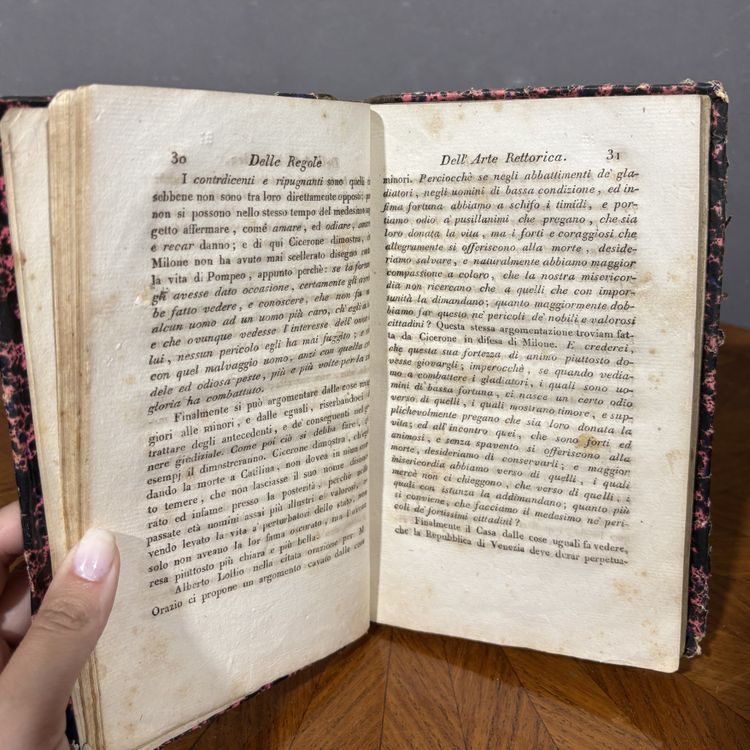 30 Delle Regole
I contrdicenti e ripugnanti sono quelli
sebbene non sono tra loro direttamente opposti;
non si possono nello stesso tempo del medesimo
getto affermare, come amare, ed odiare,
e recar danno; e di qui Cicerone dimostra,
Milone non ha avuto mai scellerato disegno
la vita di Pompeo, appunto perchè: se la fortuna
gli avesse dato occasione, certamente gli
be fatto vedere, e conoscere, che non fu
alcun uomo ad un uomo più caro, ch' egli
e che ovunque vedesse l' interesse dell'
lui, nessun pericolo egli ha mai fuggito; e
con quel malvaggio uomo. anzi con quella
dele ed odiosa peste, più e più volte per la
gloria ha combattuto.
Finalmente si può argomentare dalle cose
giori alle minori, e dalle cguali, riserbandoci
trattare degli antecedenti, e de' conseguenti nel
nere giudiziale. Come poi ciò si debba fare,
esempj il dimostreranno. Cicerone dimostra,
dando la morte a Catilina, non dovea in
to temere, che non lasciasse il suo nome
rato ed infame presso la posterità, perchè
passate età nomini assai più illustri e valorosi,
vendo levato la vita a' perturbatori dello stato,
solo non aveano la lor fama oscurato, ma l' aveano
resa piuttosto più chiara e più bella.
Alberto Lollio nella citata orazione per M
Orazio ci propone un argomento cavato dalle cose
Dell' Arte Rettorica. 31
minori. Perciocchè se negli abbattimenti de' gla-
diatori, negli uomini di bassa condizione, ed in-
fima fortuna abbiamo a schifo i timidi, e por-
tiamo odio a' pusillanimi che pregano, che sia
loro donata la vita, ma i forti e coraggiosi che
allegramente si offeriscono alla morte, deside-
riamo salvare, e naturalmente abbiamo maggior
compassione a coloro, che la nostra misericor-
dia non ricercano che a quelli che con impor-
tunità la dimandano; quanto maggiormente dob-
biamo far questo ne' pericoli de' nobili e valorosi
cittadini? Questa stessa argomentazione troviam fat-
ta da Cicerone in difesa di Milone. E crederei,
che questa sua fortezza di animo piuttosto do-
vesse giovargli; imperocchè, se quando vedia-
mo a combattere i gladiatori, i quali sono uo-
mini di bassa fortuna, ci nasce un certo odio
verso di quelli, i quali mostrano timore, e sup-
plichevolmente pregano che sia loro donata la
vita; ed all' incontro quei, che sono forti ed
animosi, e senza spavento si offeriscono alla
morte, desideriamo di conservarli; e maggior
misericordia abbiamo verso di quelli, i quali
mercè non ci chieggono, che verso di quelli, i
quali con istanza la addimandano; quanto più
si conviene, che facciamo il medesimo ne' peri-
coli de' fortissimi cittadini?
Finalmente il Casa dalle cose uguali fa vedere,
che la Repubblica di Venezia deve durar perpetua-